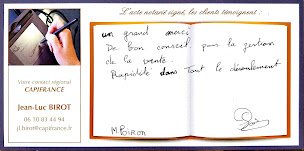 L'acte notarié signé, les clients témoignent : . .
un grand merci
De bon conseil pour la gestion
de la vente.
Rapidité dans Tout le déroulement
M POIRON
Votre contact régional
CAPIFRANCE
Jean-Luc BIROT
06 70 83 44 94
jl.birot@capifrance.fr